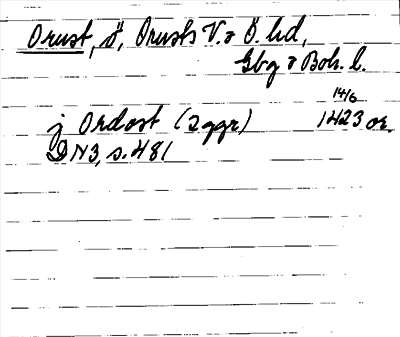 Orust, ö, Orusts V. o Ö. hd,
Gbg o Boh. l.
j Ordost (2 ggr) 14/6 1423 or.
DN3, s. 481